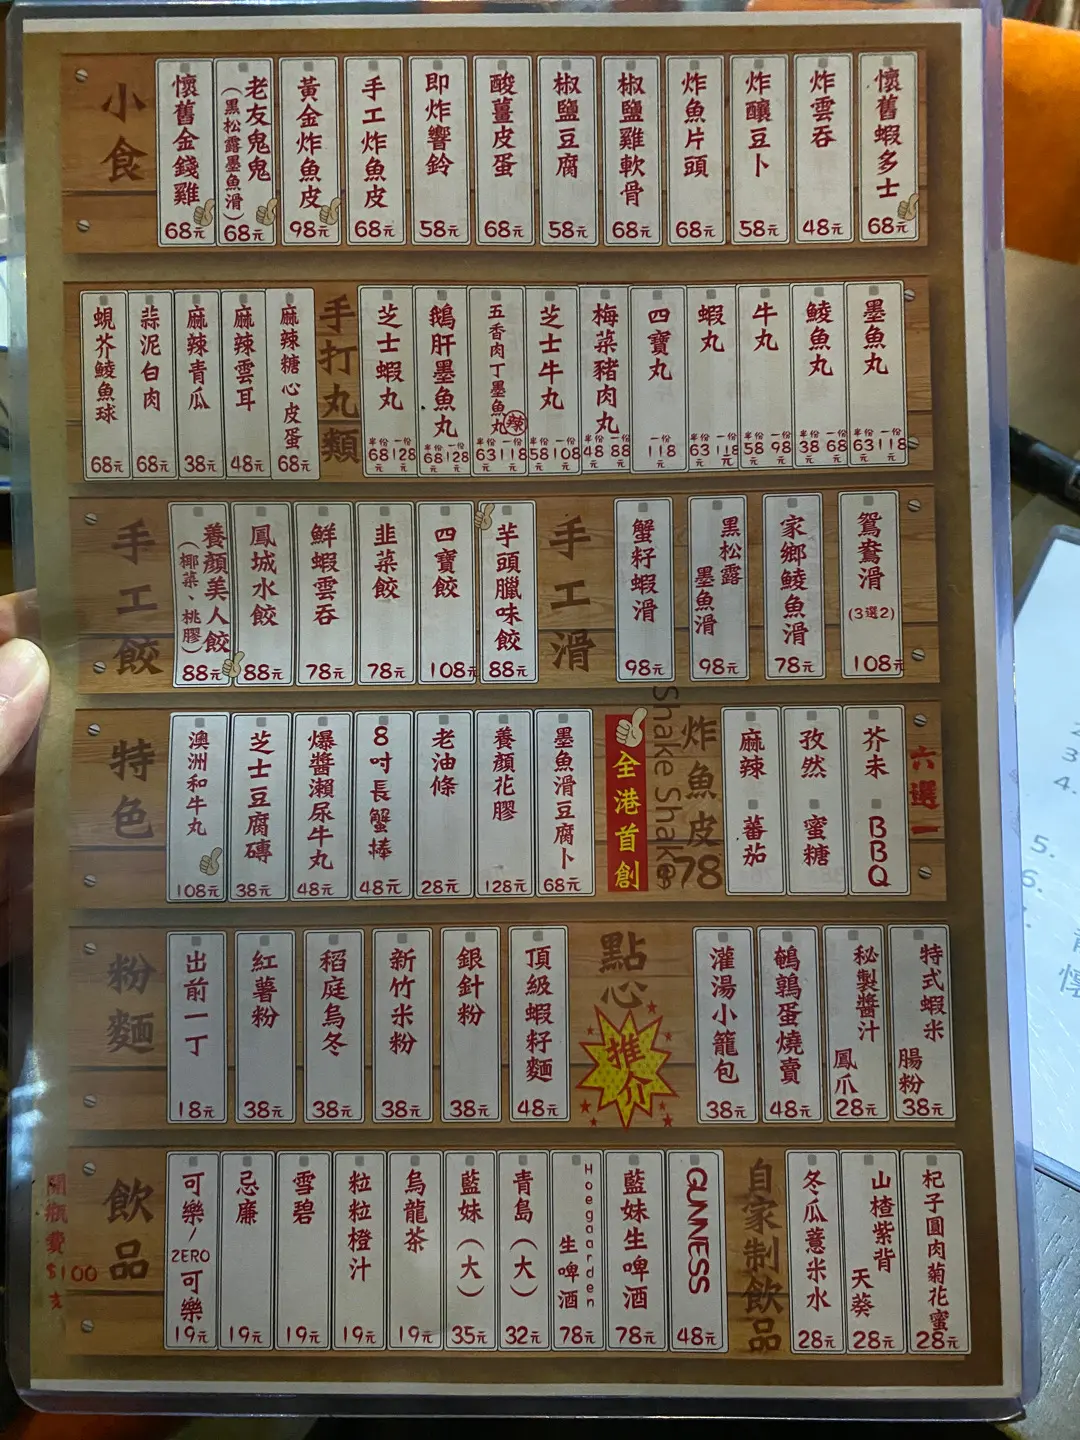 小食
懷舊金錢雞 68元
老友鬼鬼 (黑松露墨魚滑) 68元
黃金炸魚皮 98元
手工炸魚皮 68元
即炸響鈴 58元
酸薑皮蛋 68元
椒鹽豆腐 58元
椒鹽雞軟骨 68元
炸魚片頭 68元
炸釀豆卜 58元
炸雲吞 48元
懷舊蝦多士 68元
蜆芥鯪魚球 68元
蒜泥白肉 68元
麻辣青瓜 38元
麻辣雲耳 48元
麻辣糖心皮蛋 68元
手打丸類
芝士蝦丸 半份68元 一份128元
鵝肝墨魚丸 半份68元 一份128元
五香肉丁墨魚丸 辣 半份63元 一份118元
芝士牛丸 半份58元 一份108元
梅菜豬肉丸 半份48元 一份88元
四寶丸 一份118元
蝦丸 半份63元 一份118元
牛丸 半份58元 一份98元
鯪魚丸 半份38元 一份68元
墨魚丸 半份63元 一份118元
手工餃
養顏美人餃 (椰菜、桃膠) 88元
鳳城水餃 88元
鮮蝦雲吞 78元
韭菜餃 78元
四寶餃 108元
芋頭臘味餃 88元
手工滑
蟹籽蝦滑 98元
黑松露墨魚滑 98元
家鄉鯪魚滑 78元
鴛鴦滑 (3選2) 108元
特色
澳洲和牛丸 108元
芝士豆腐磚 38元
爆醬瀨尿牛丸 48元
8吋長蟹棒 48元
老油條 28元
養顏花膠 128元
墨魚滑豆腐卜 68元
全港首創
Shake Shake
炸魚皮 $78
麻辣
蕃茄
孜然
蜜糖
芥末
BBQ
六選一
粉麵
出前一丁 18元
紅薯粉 38元
稻庭烏冬 38元
新竹米粉 38元
銀針粉 38元
頂級蝦籽麵 48元
點心
推介
灌湯小籠包 38元
鵪鶉蛋燒賣 48元
秘製醬汁鳳爪 28元
特式蝦米腸粉 38元
飲品
可樂/ZERO可樂 19元
忌廉 19元
雪碧 19元
粒粒橙汁 19元
烏龍茶 19元
藍妹(大) 35元
青島(大) 32元
Hoegarden生啤酒 78元
藍妹生啤酒 78元
GUNNESS 48元
自家制飲品
冬瓜薏米水 28元
山楂紫背天葵 28元
杞子圓肉菊花蜜 28元
開瓶費$100支
2
3
4.
5.
6.